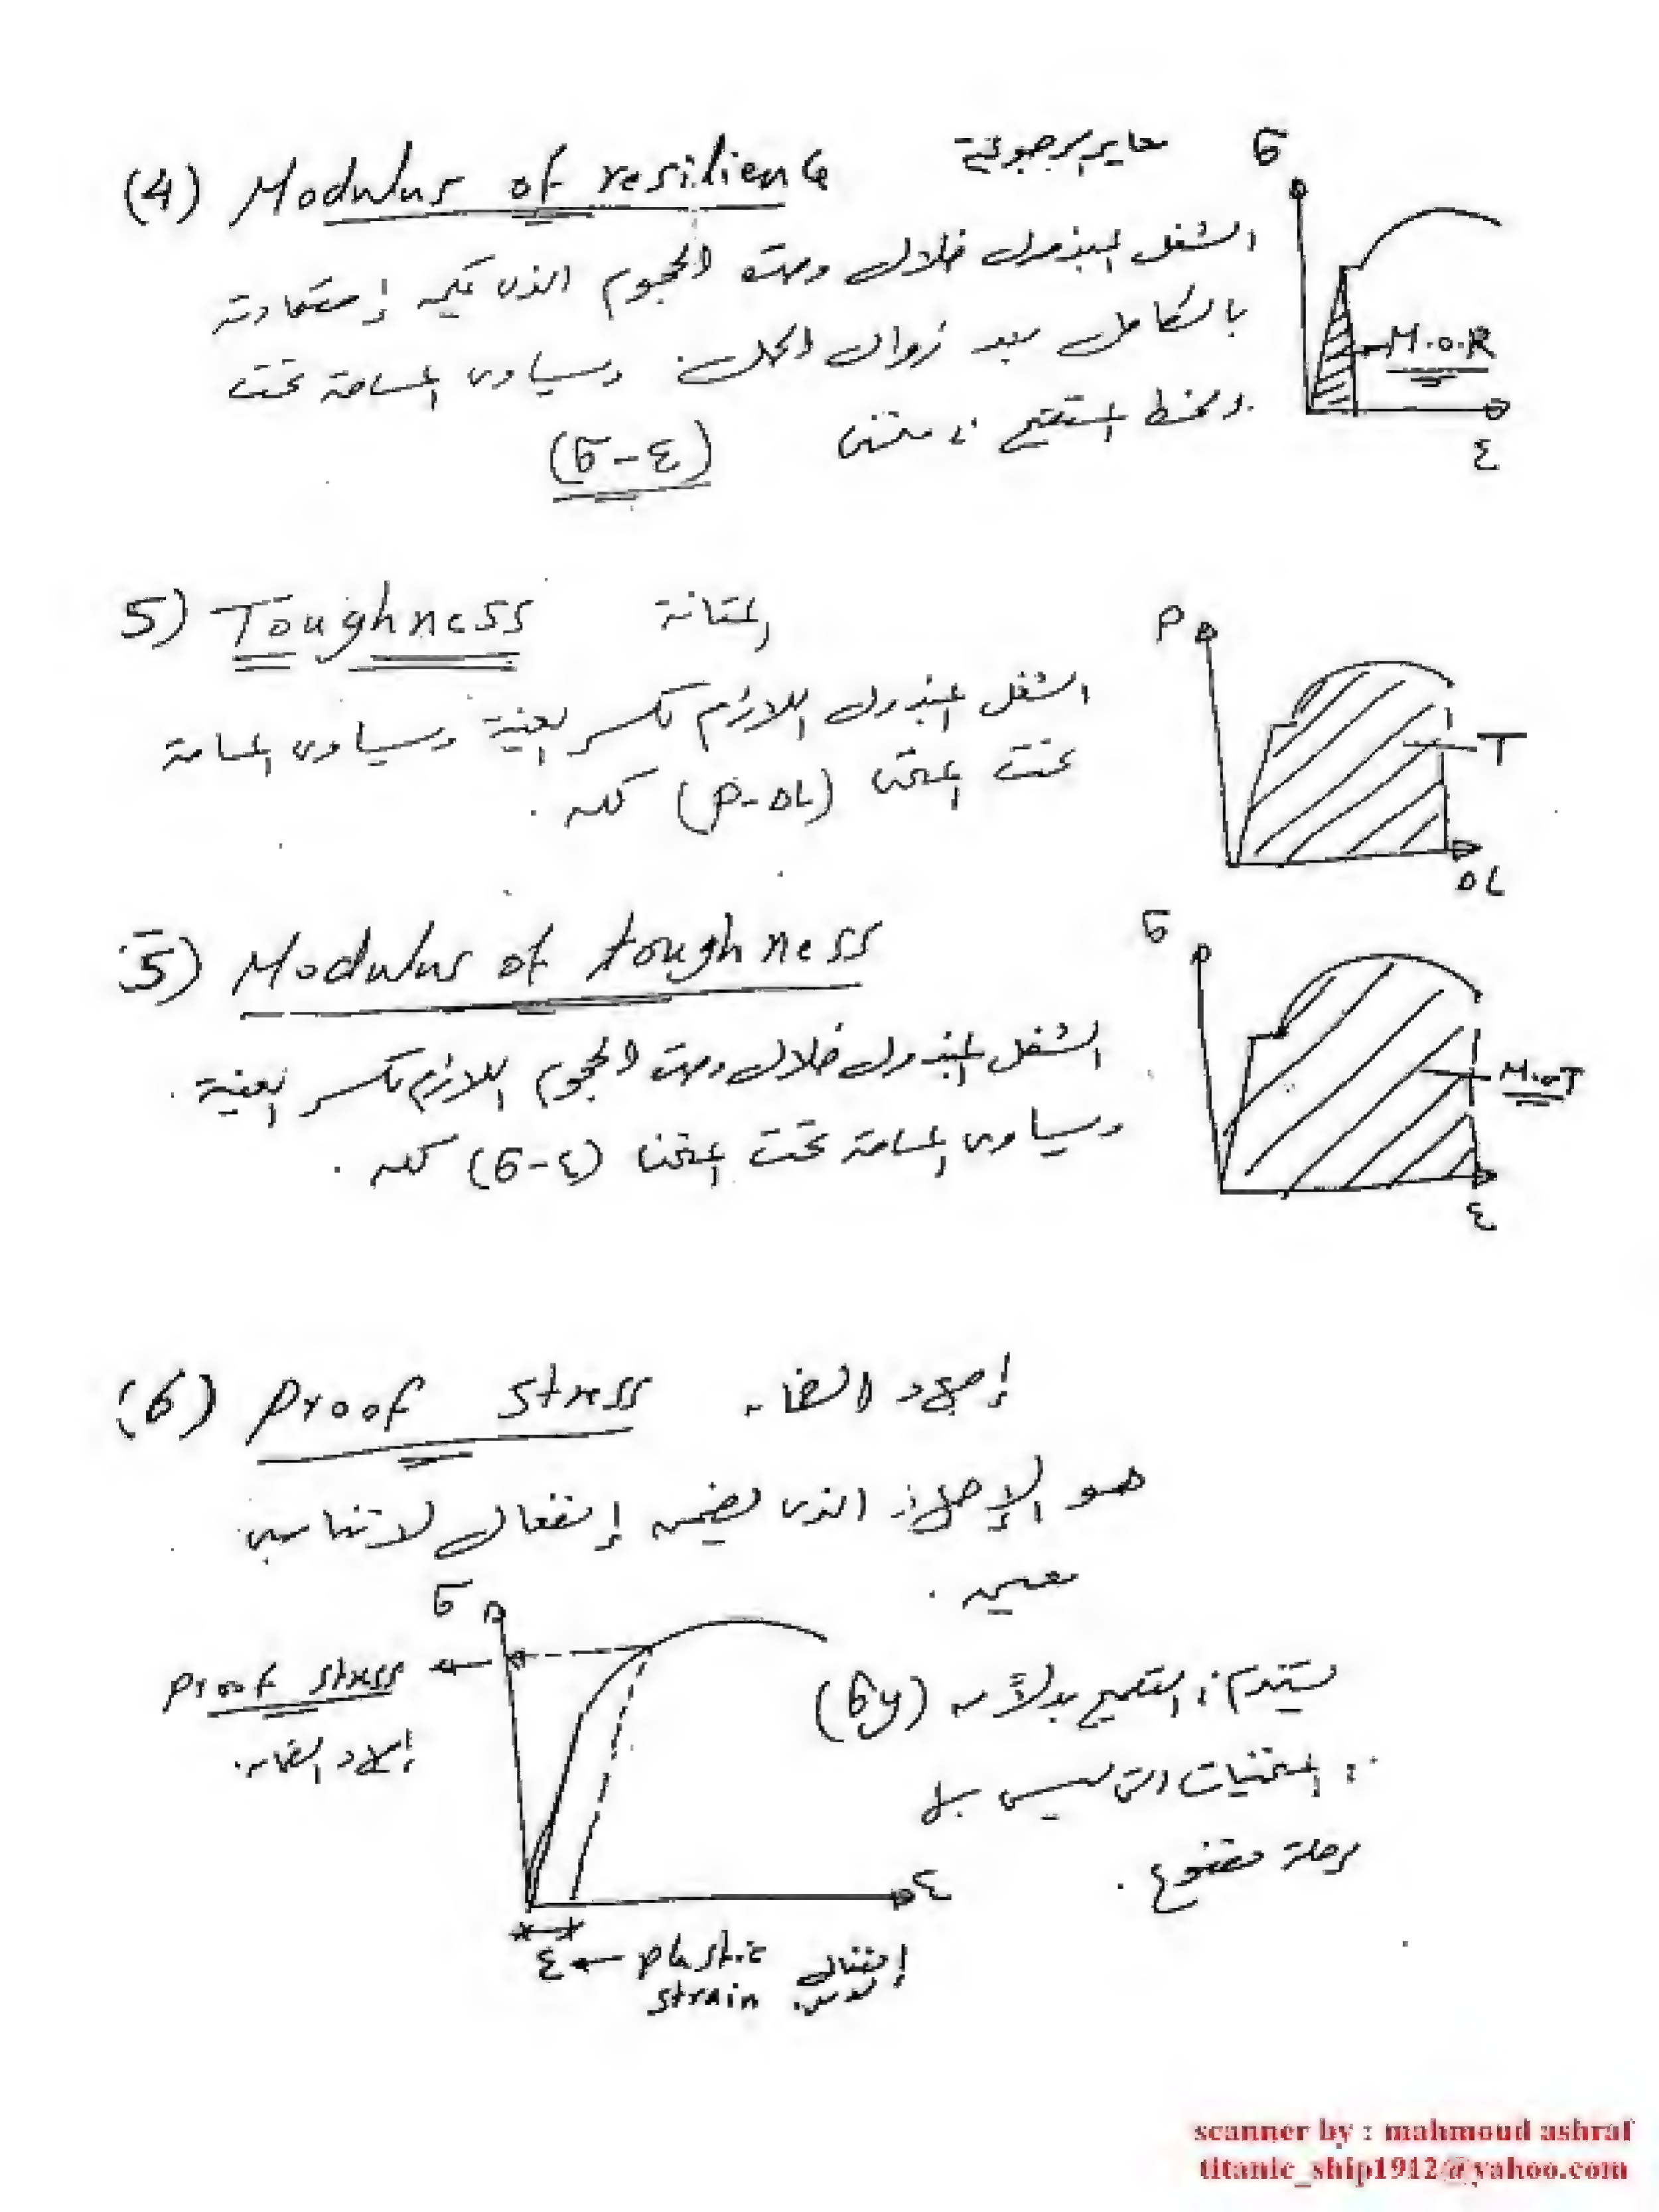 (4) Modulus of resilience معاير الرجوعية
الشغل المبذول خلال وحدة الحجوم الذى يمكن إستعادته
بالكامل بعد زوال الحمل ويساوى المساحة تحت
الخط المستقيم فى منحنى (σ-ε)
σ
M.O.R
ε
5) Toughness المتانة
الشغل المبذول اللازم لكسر العينة ويساوى المساحة
تحت المنحنى (P-ΔL) كله .
P
T
ΔL
5) Modulus of toughness
الشغل المبذول خلال وحدة الحجوم اللازم لكسر العينة .
ويساوى المساحة تحت المنحنى (σ-ε) كله .
σ
M.o.T
ε
(6) Proof stress إجهاد الضمان
هو الإجهاد الذى يضمن إنفعال لا تناسبى
معين .
σ
Proof stress
إجهاد الضمان
ε
ε ← plastic strain إنفعال لدن
يستخدم فى التصميم بدلاً من (σy)
فى المنحنيات التى ليس بها
مرحلة خضوع .
scanner by : mahmoud ashraf
titanic_ship1912@yahoo.com